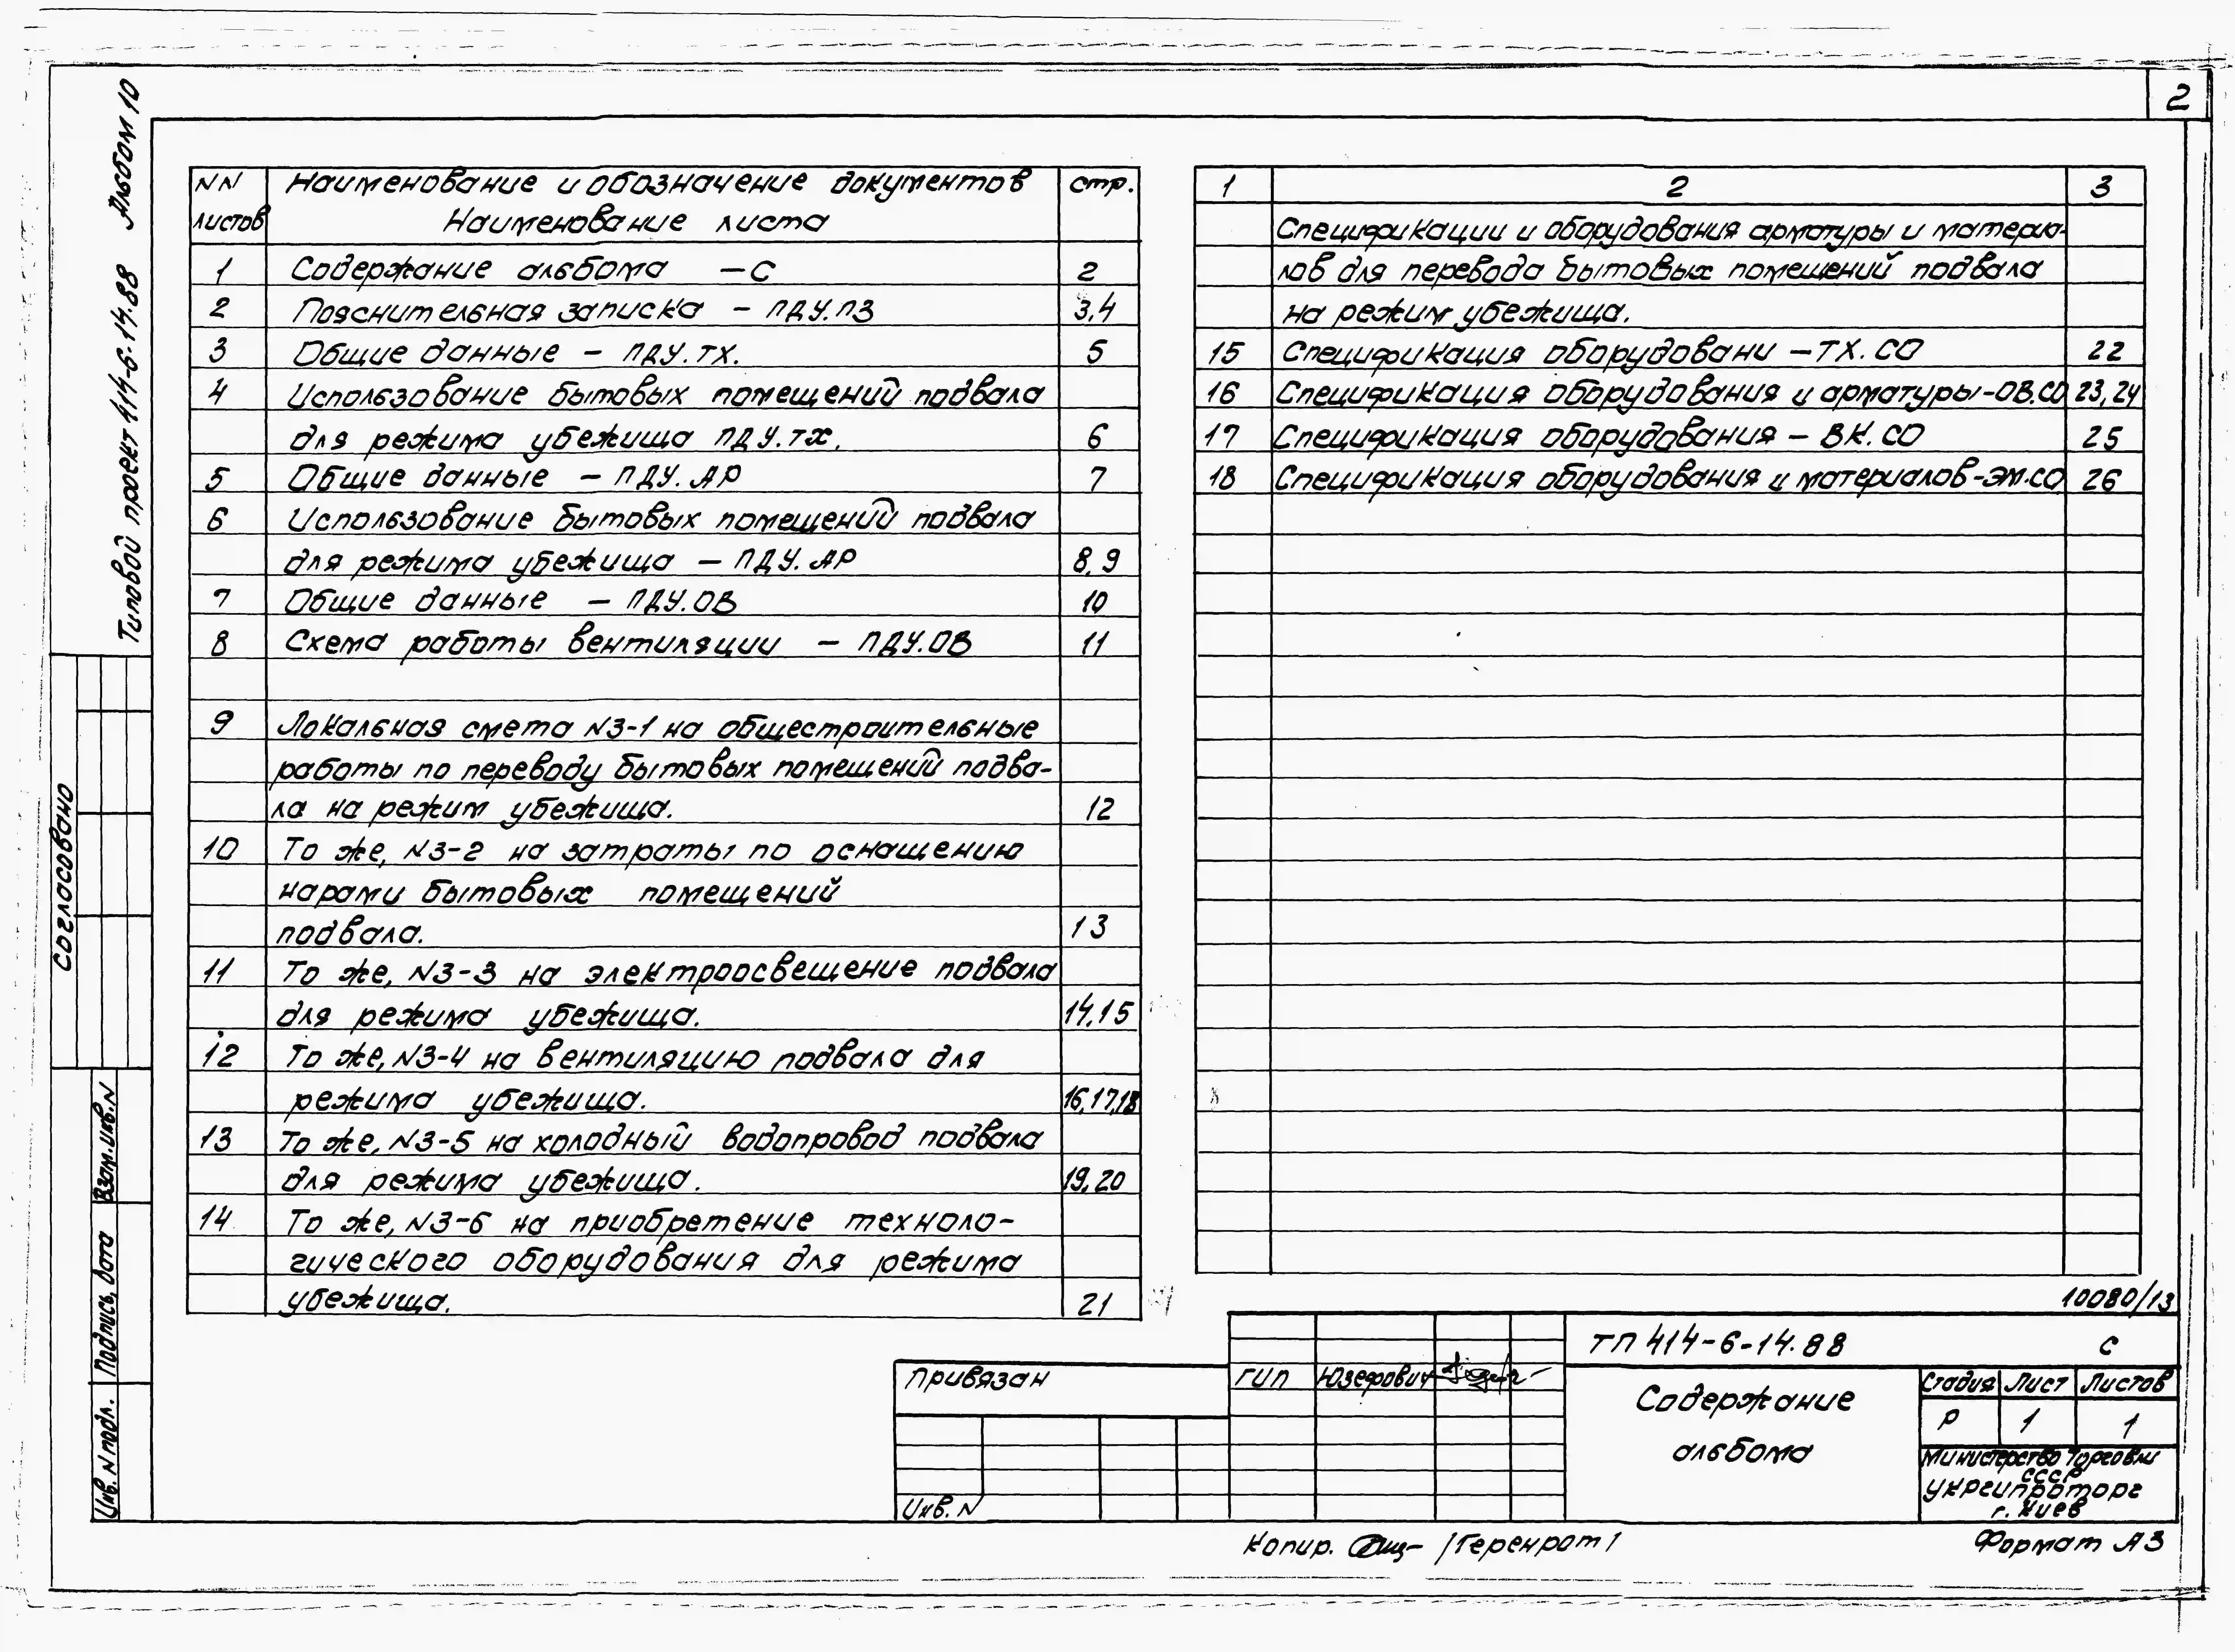 2
Альбом 10
Типовой проект 414-6-14.88
NN Наименование и обозначение документов стр.
листов Наименование листа
1 Содержание альбома — С 2
2 Пояснительная записка - ПДУ.ПЗ 3,4
3 Общие данные - ПДУ.ТХ. 5
4 Использование бытовых помещений подвала
для режима убежища ПДУ.ТХ. 6
5 Общие данные - ПДУ.АР 7
6 Использование бытовых помещений подвала
для режима убежища — ПДУ.АР 8,9
7 Общие данные — ПДУ.ОВ 10
8 Схема работы вентиляции — ПДУ.ОВ 11
9 Локальная смета N3-1 на общестроительные
работы по переводу бытовых помещений подва-
ла на режим убежища. 12
10 То же, N3-2 на затраты по оснащению
нарами бытовых помещений
подвала. 13
11 То же, N3-3 на электроосвещение подвала
для режима убежища. 14,15
12 То же, N3-4 на вентиляцию подвала для
режима убежища. 16,17,18
13 То же, N3-5 на холодный водопровод подвала
для режима убежища. 19,20
14 То же, N3-6 на приобретение техноло-
гического оборудования для режима
убежища. 21
1 2 3
Спецификации и оборудования арматуры и материа-
лов для перевода бытовых помещений подвала
на режим убежища.
15 Спецификация оборудовани — ТХ.СО 22
16 Спецификация оборудования и арматуры-ОВ.СО 23,24
17 Спецификация оборудования — ВК.СО 25
18 Спецификация оборудования и материалов-ЭМ.СО 26
Согласовано
Взам.инв.N
Подпись, дата
Инв. N подл.
10080/13
ТП 414-6-14.88 С
Привязан
ГИП Юзефович
Содержание
альбома
Стадия Лист Листов
Р 1 1
Министерство торговли
СССР
Укргипроторг
г. Киев
Инв. N
Копир. /Геренрот/
Формат А3